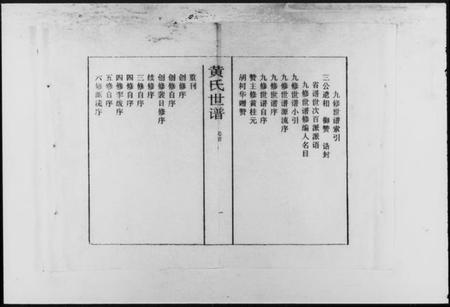 九修世谱索引
三公遗相 御赞 诰封
省谱世次百派派语
九修世谱修编人名目
九修世谱小引
九修世谱源流序
九修世谱序
九修世谱自序
赞主修黄桂元
胡柯华赠赞
黄氏世谱
卷首
一
重刊
创修序
创修自序
创修裴日修序
续修序
三修自序
四修自序
四修李绂序
五修自序
六修源流序